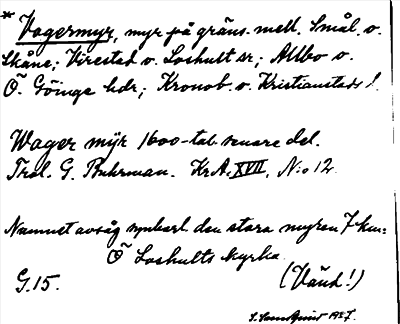 * Vagermyr, myr på gräns. mell. Smål. o.
Skåne; Virestad o. Loshult sr; Allbo o.
Ö. Göinge hdr; Kronob. o. Kristianstads l.
Wager mÿr 1600-tal. senare del.
Trol. G. Buhrman. KrA, XVII, N:o 12.
Namnet avsåg synbarl. den stora myren 7 km:
Ö Loshults kyrka.
G. 15. (Vänd!)
1927.